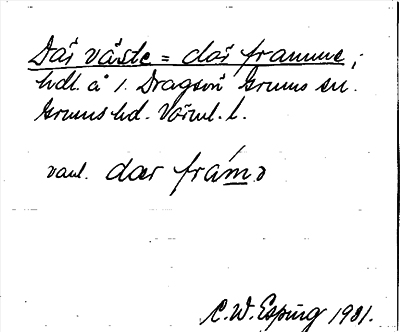 Där väste = där framme;
hdl. å 1. Dragsön Grums sn.
Grums hd. Värml. l.
vanl. dær fram ə
C. W. Esping 1931.